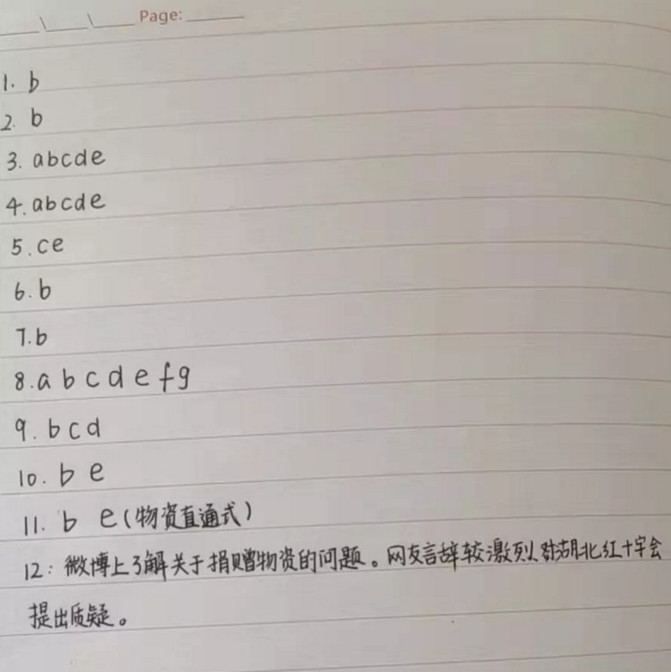 Page:
1. b
2. b
3. abcde
4. abcde
5. ce
6. b
7. b
8. a b c d e f g
9. b c d
10. b e
11. b e(物资直通式)
12: 微博上了解关于捐赠物资的问题。网友言辞较激烈对湖北红十字会
提出质疑。